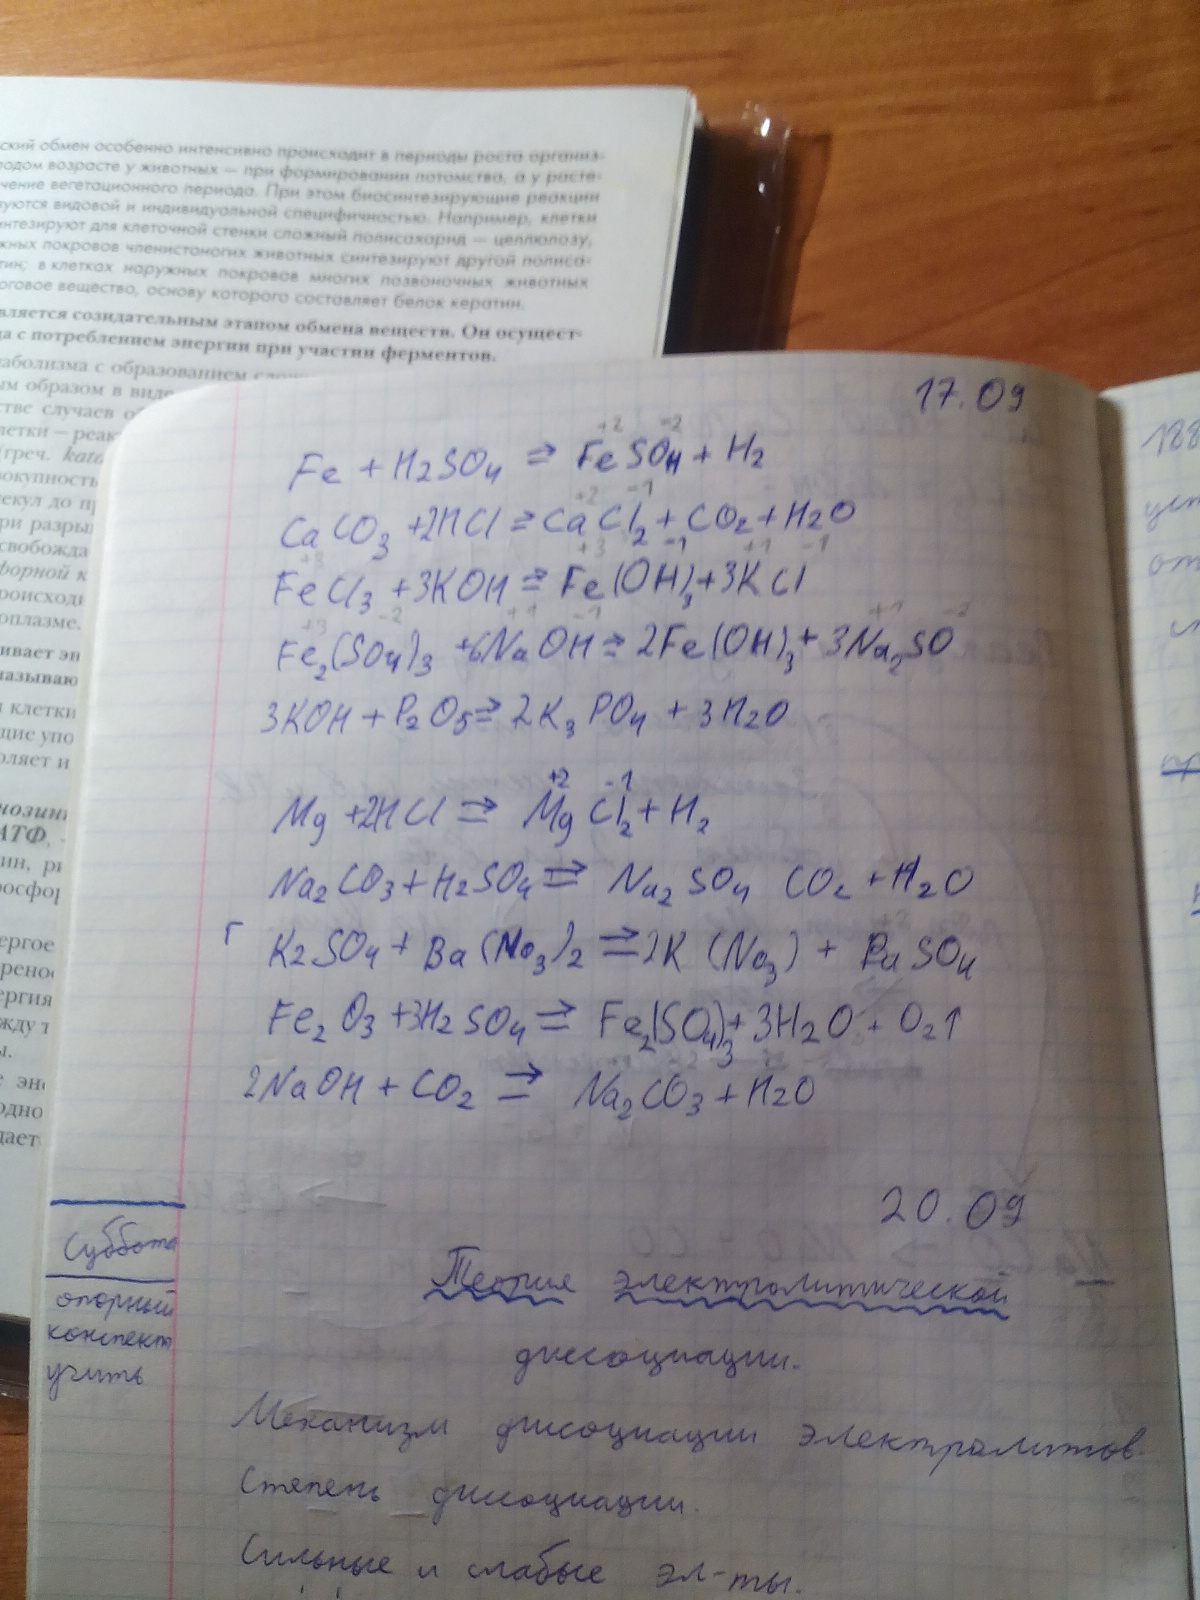 ский обмен особенно интенсивно происходит в периоды роста организ-
одом возрасте у животных — при формировании потомства, а у расте-
чение вегетационного периода. При этом биосинтезирующие реакции
зуются видовой и индивидуальной специфичностью. Например, клетки
интезируют для клеточной стенки сложный полисахарид — целлюлозу,
жных покровов членистоногих животных синтезируют другой полиса-
тин; в клетках наружных покровов многих позвоночных животных
оговое вещество, основу которого составляет белок кератин.
вляется созидательным этапом обмена веществ. Он осущест-
да с потреблением энергии при участии ферментов.
аболизма с образованием
ым образом в виде
стве случаев
летки – реак
(греч. kata
вокупность
екул до п
ри разры
свобожда
форной к
роисходи
оплазме.
ивает эн
называю
и клетки
щие упо
оляет и
нозин
АТФ,
ин, ри
росфор
ергое
ренос
ергия
жду т
ы.
е эн
одно
дает
17.09
+2 -2
Fe + H2SO4 ⇒ FeSO4 + H2
+2 -1
CaCO3 +2HCl ⇒ CaCl2 + CO2 + H2O
+3 +3 -1 +1 -1
FeCl3 +3KOH ⇒ Fe(OH)3 +3KCl
+3 -2 +1 -1 +1 -2
Fe2(SO4)3 +6NaOH ⇒ 2Fe(OH)3 + 3Na2SO
3KOH + P2O5 ⇒ 2K3PO4 + 3H2O
+2 -1
Mg +2HCl ⇒ MgCl2 + H2
Na2CO3 + H2SO4 ⇒ Na2SO4 CO2 + H2O
Г K2SO4 + Ba(No3)2 ⇒ 2K(No3) + BaSO4
Fe2O3 +3H2SO4 ⇒ Fe2(SO4)3 + 3H2O + O2↑
2NaOH + CO2 ⇒ Na2CO3 + H2O
20.09
Суббота
опорный
конспект
учить
Теория электролитической
диссоциации.
Механизм дисоциации электролитов.
Степень диссоциации.
Сильные и слабые эл-ты.
188
от